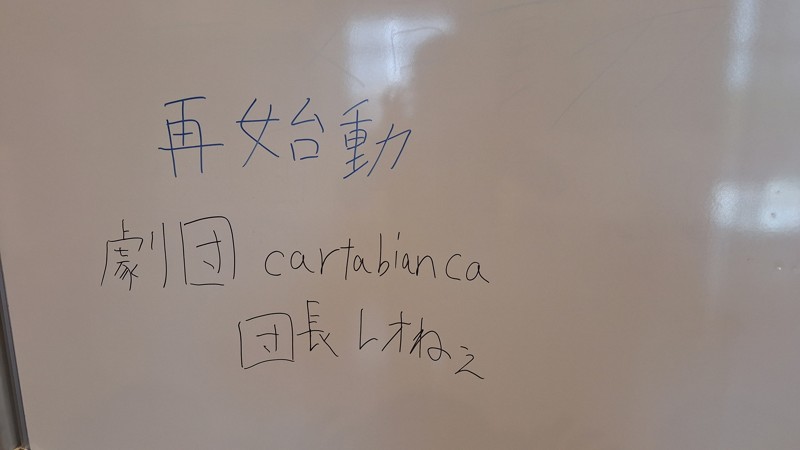 再始動
劇団 cartabianca
団長 レオねぇ